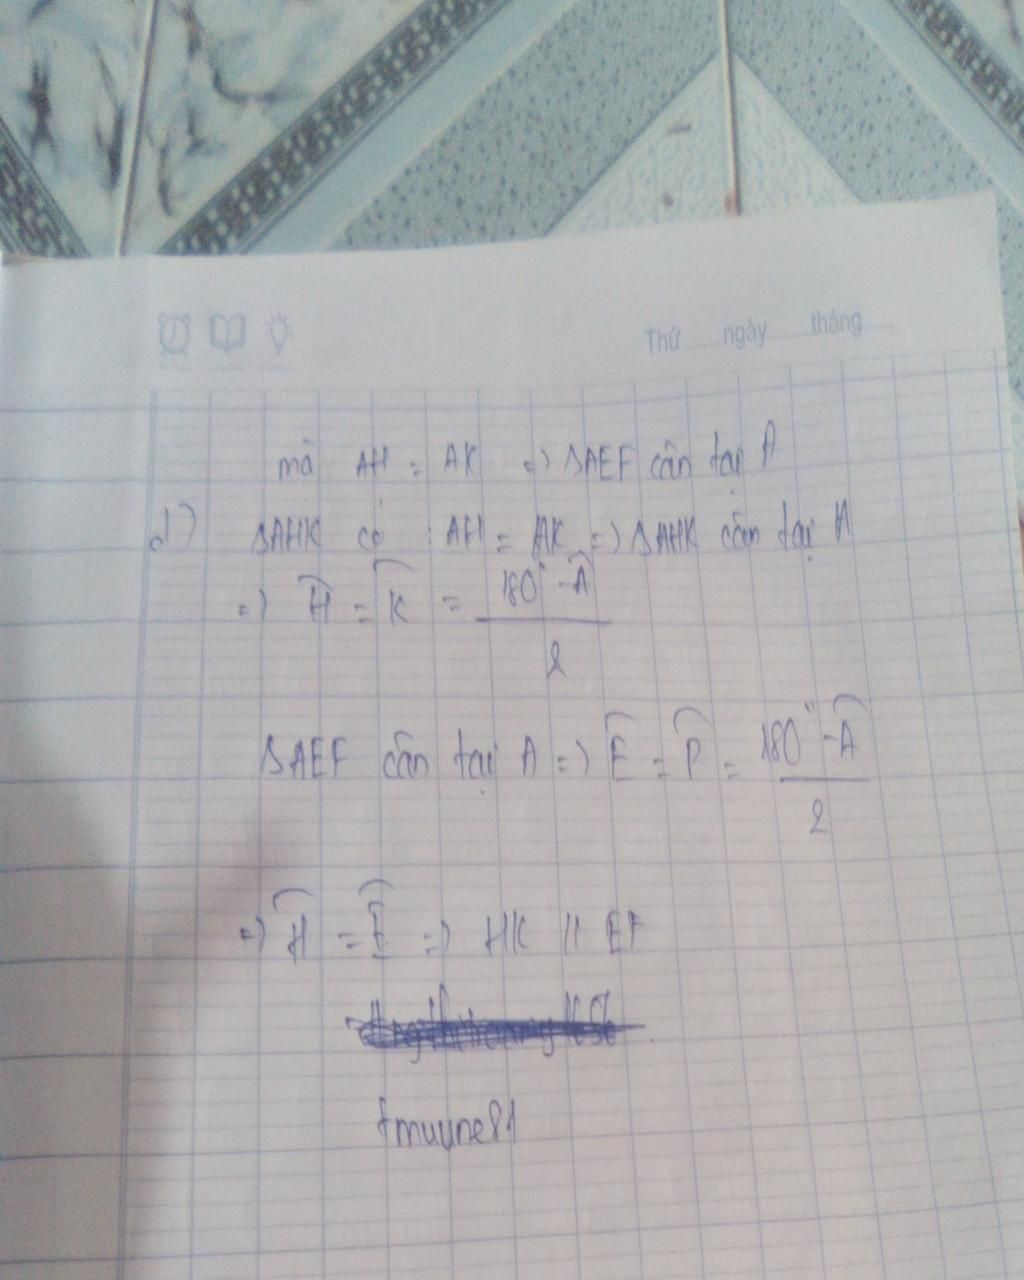 Thứ ngày tháng
mà AH = AK => ΔAEF cân tại A
d) ΔAHK có : AH = AK => ΔAHK cân tại A
=> Ĥ = K̂ = (180° - Â) / 2
ΔAEF cân tại A => Ê = P̂ = (180° - Â) / 2
=> Ĥ = Ê => HK // EF
tmuune81